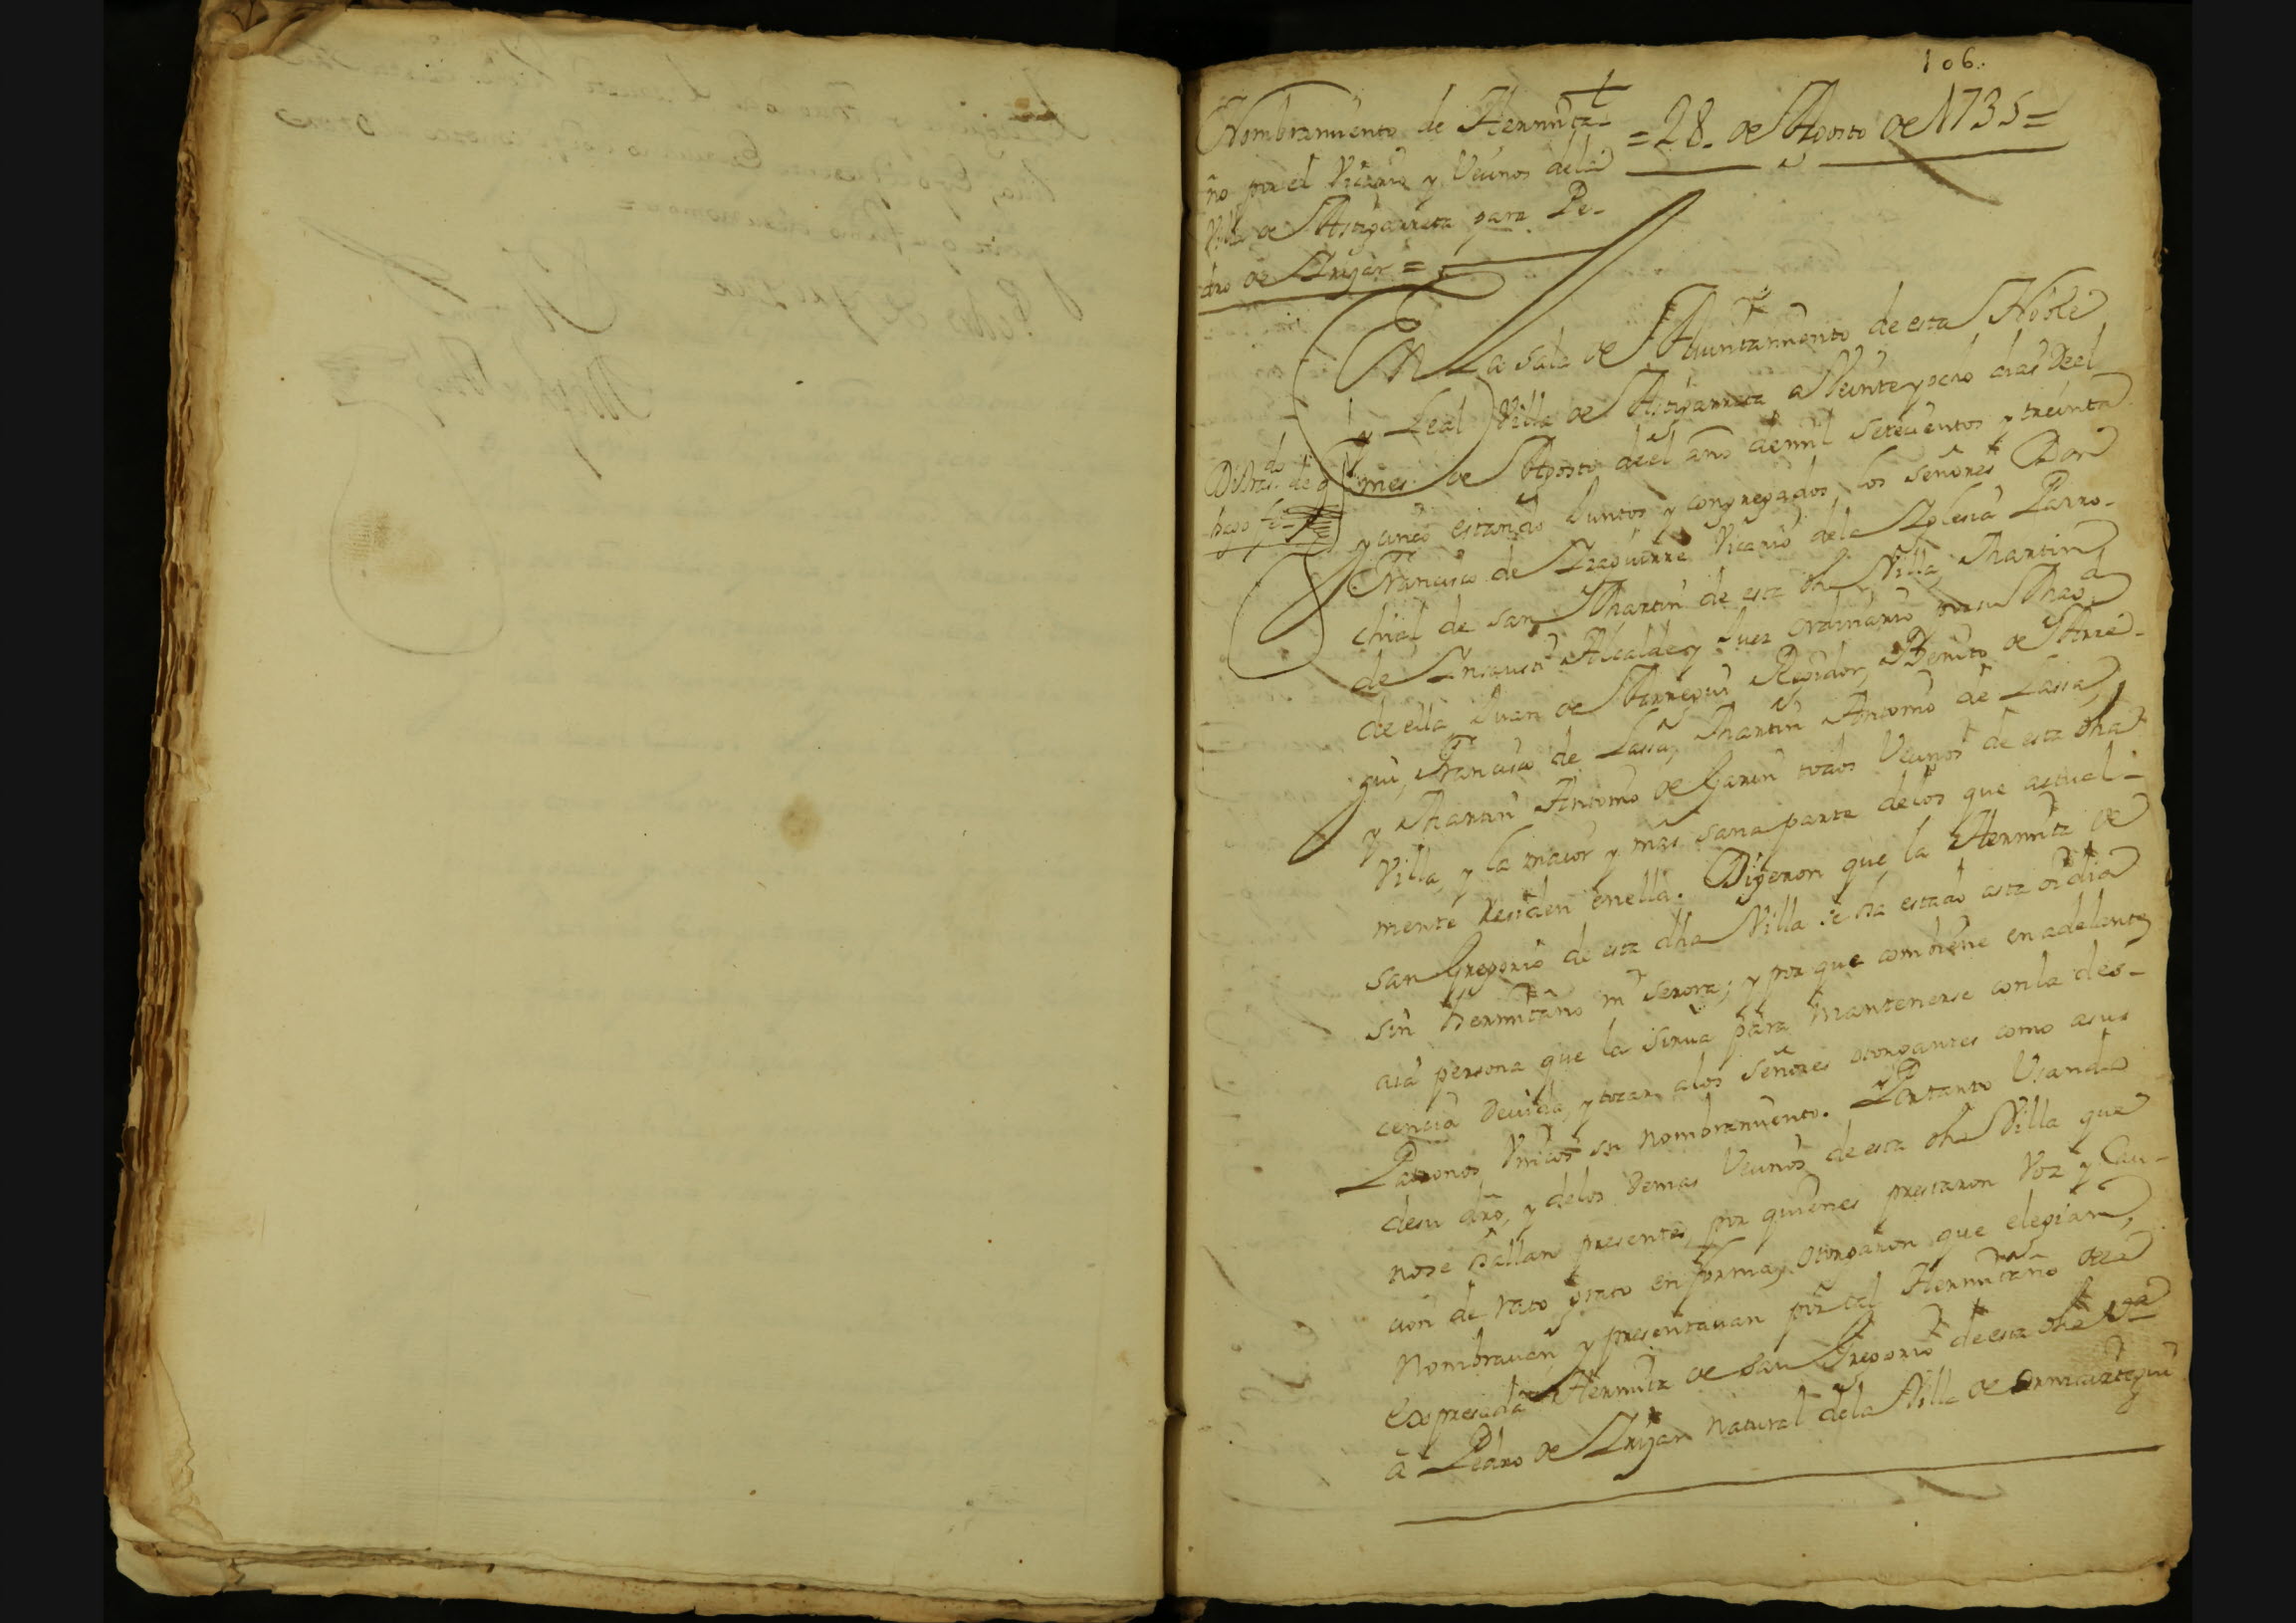 106.
Nombramiento de Hermita-
ño por el Vicario y Vecinos dela
Villa de Astigarreta para Pe-
dro de Irijar =
= 28. de Agosto de 1735 =
En La Sala de Aiuntamiento de esta Noble
y Leal Villa de Astigarreta a Veinte y ocho dias Deel
mes de Agosto deel año de mil Setecientos y treinta
y cinco estando Juntos y congregados los señores Don
Francisco de Izaguirre Vicario dela Iglesia Parro-
chial de San Martin de esta dha Villa, Martin
de Insausti Alcalde y Juez ordinario por su Magd
de ella, Juan de Arregui Regidor, Benito de Arre-
gui, Francisco de Lassa, Martin Antonio de Lassa,
y Martin Antonio de Garin todos Vecinos de esta dha
Villa, y la maior y mas sana parte delos que actual-
mente residen enella. Digeron que la Hermita de
San Gregorio de esta dha Villa se ha estado asta oi dia
sin hermitaño ni serora; y por que combiene en adelante
aia persona que la sirua para mantenerse con la des-
cencia Deuida, y tocar a los Señores otorgantes como a sus
Patronos Vnicos su nombramiento. Portanto Usando
de su dro, y delos Demas Vecinos de esta dha Villa que
nose hallan presentes por quienes prestaron Voz y Cau-
cion de rato grato en forma, otorgaron que elegian,
Nombrauan, y presentauan por tal Hermitaño dela
Expresada Hermita de San Gregorio de esta dha Va
à Pedro de Irijar Natural dela Villa de Ormaiztegui
do
hago fe